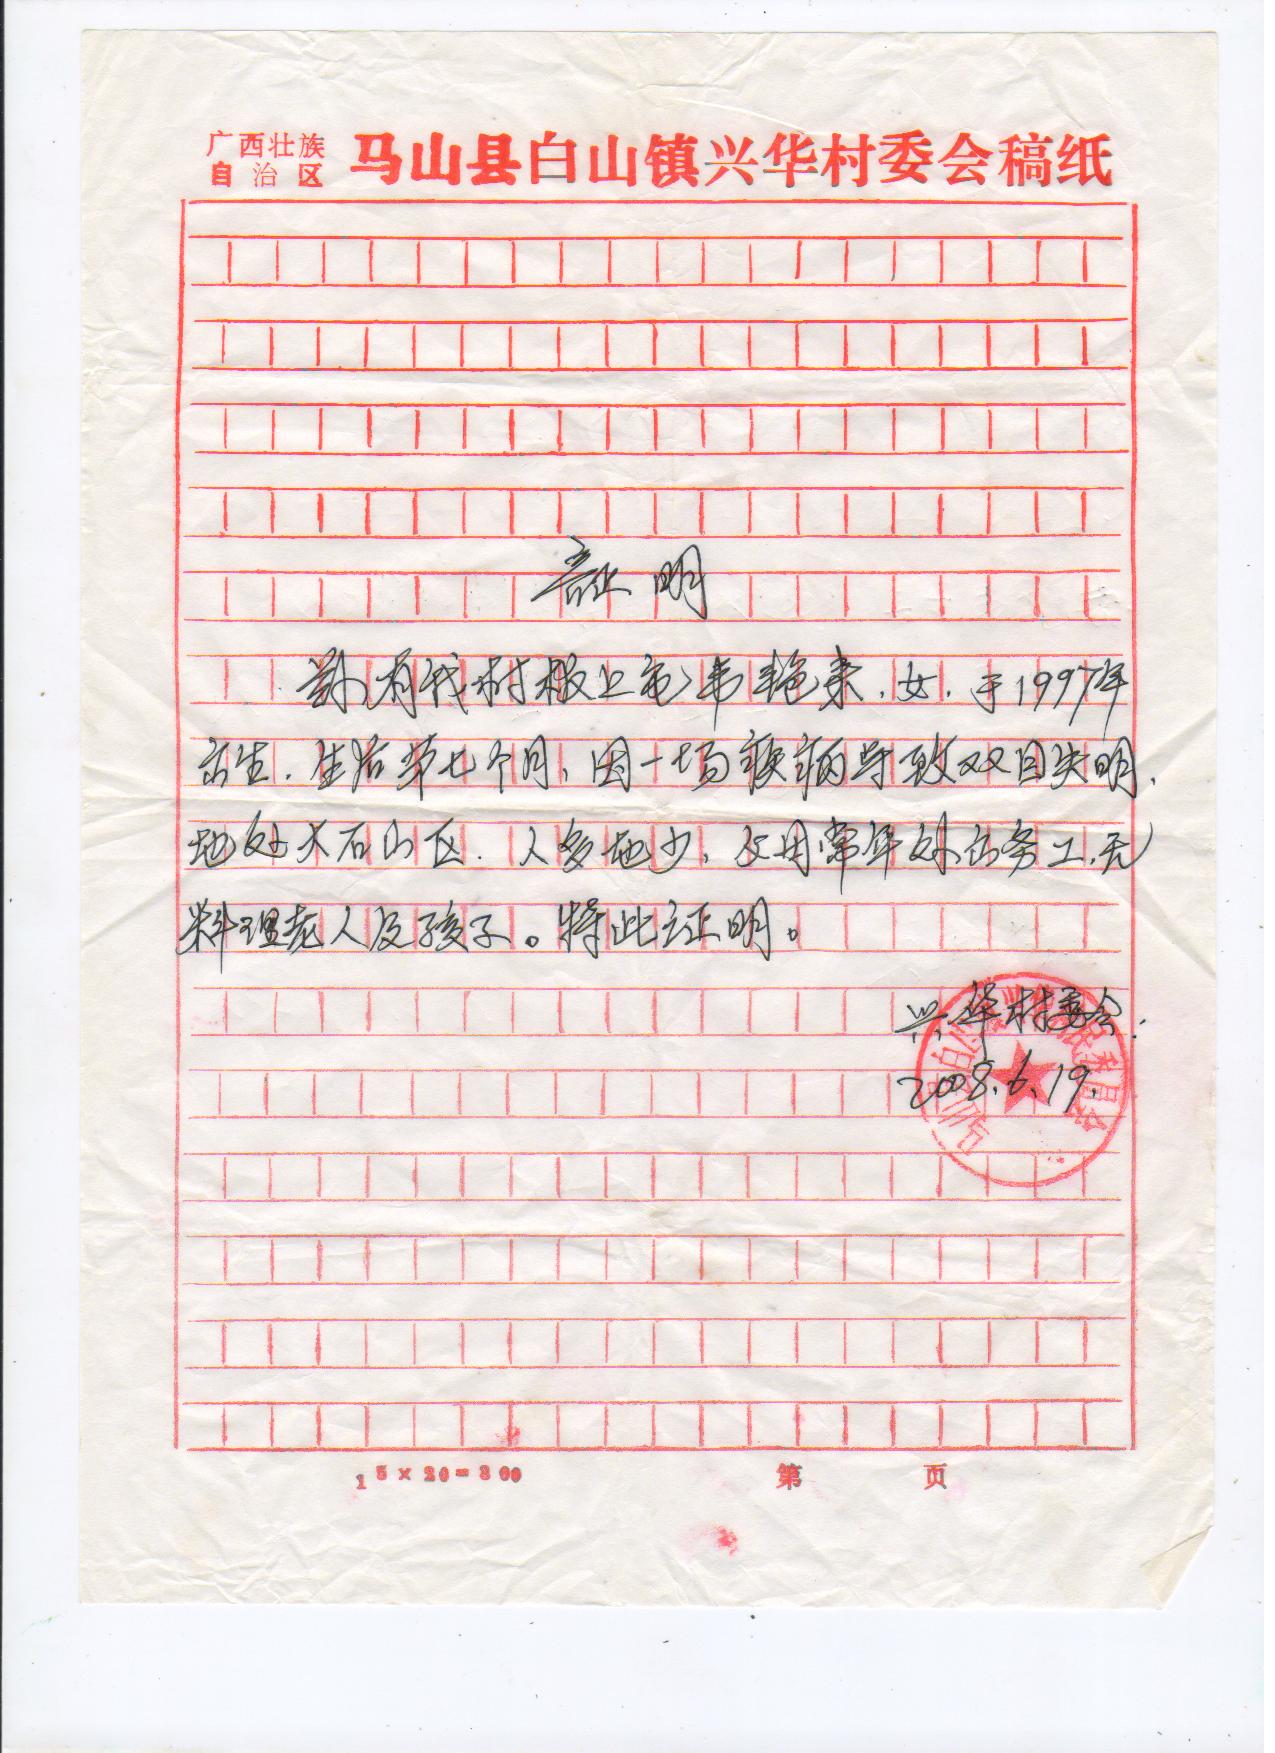 广西壮族
自治区
马山县白山镇兴华村委会稿纸
证明
兹有我村板上屯韦艳来,女,于1997年
出生.生后第七个月,因一场疾病导致双目失明,
地处大石山区.人多地少,父母常年外出务工,无
料理老人及孩子。特此证明。
兴华村委会.
2008.6.19.
15×20=300
第 页